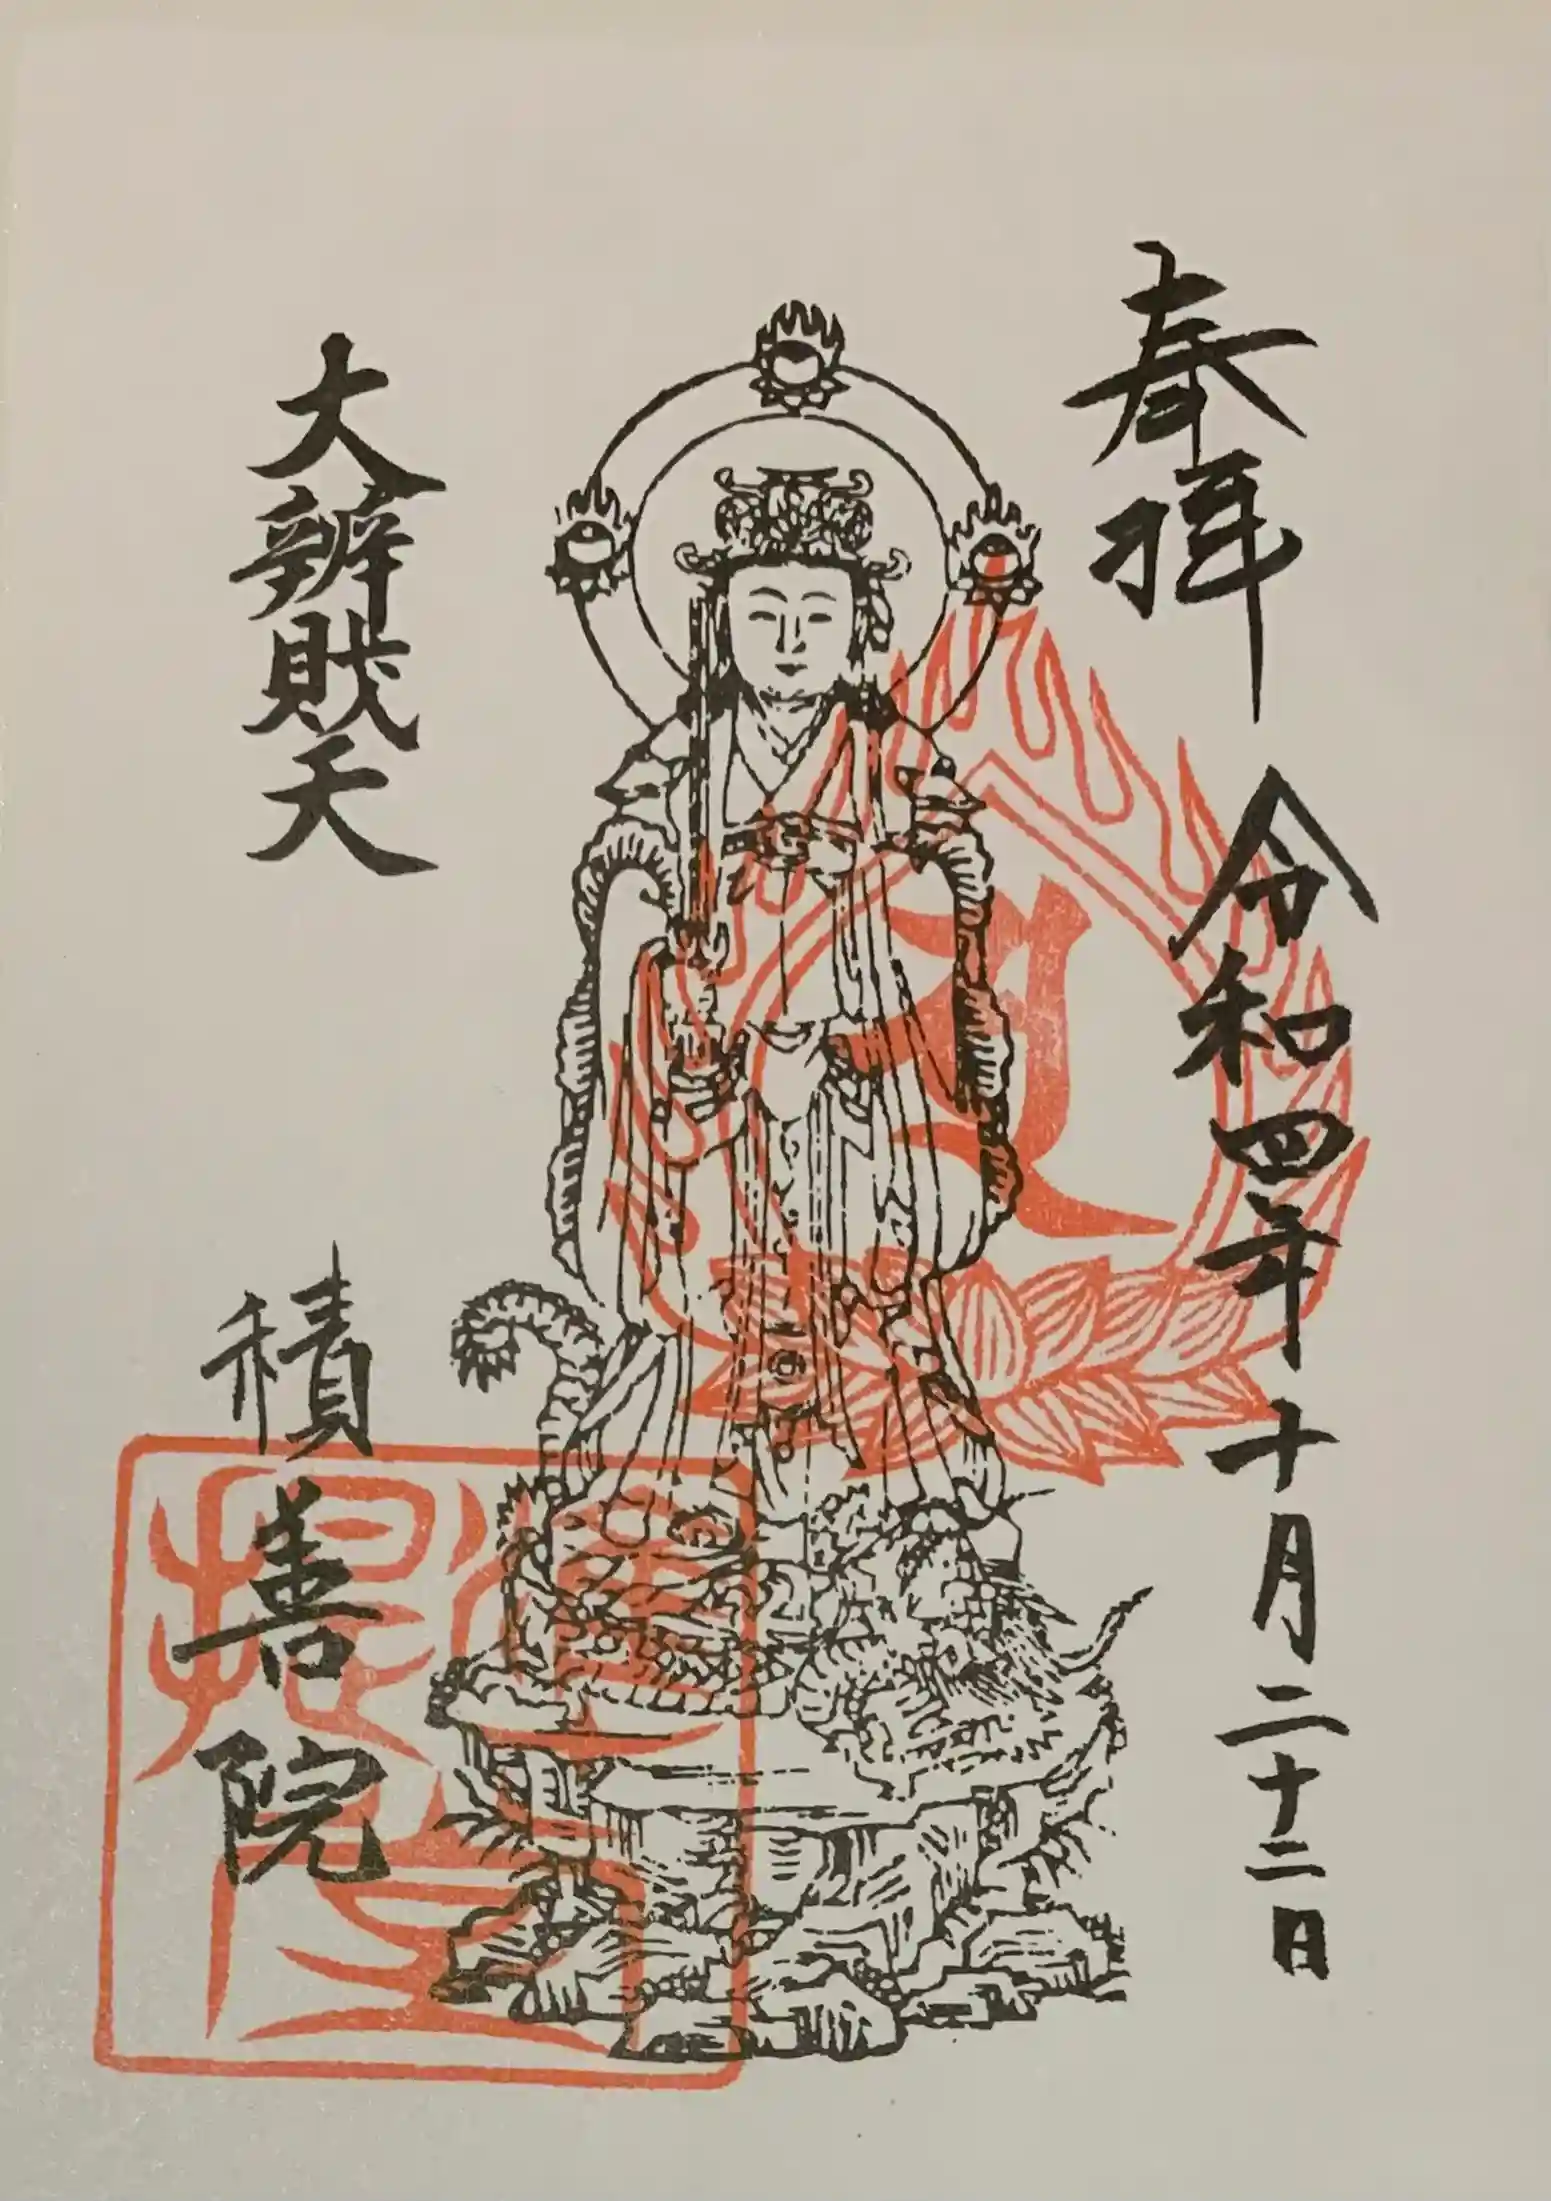 奉拝
令和四年十月二十二日
大辨財天
積善院
準提堂